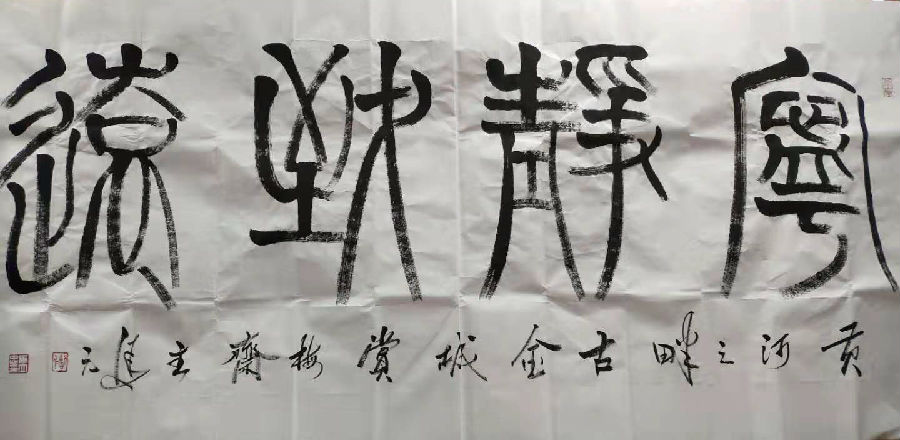 寧靜致遠
黄河之畔古金城賞梅齋主建元